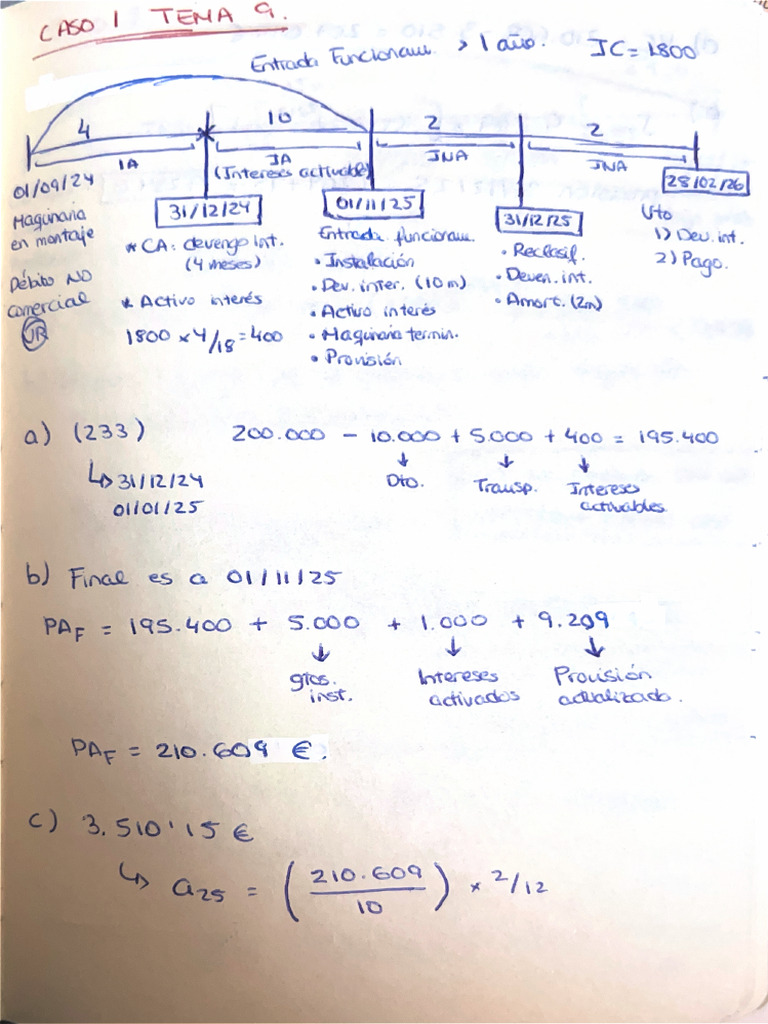 CASO 1 TEMA 9.
Entrada Funcionam. > 1 año. IC = 1800
4 10 2 2
IA IA INA INA
(Intereses activable)
01/09/24 31/12/24 01/11/25 31/12/25 28/02/26
Maquinaria
en montaje
Débito NO
comercial
VR
* CA: devengo int.
(4 meses)
* Activo interés
1800 × 4/18 = 400
Entrada funcionam.
• Instalación
• Dev. inter. (10 m)
• Activo interés
• Maquinaria termin.
• Provisión
• Reclasif.
• Deven. int.
• Amort. (2m)
Vto
1) Dev. int.
2) Pago.
a) (233) 200.000 - 10.000 + 5.000 + 400 = 195.400
↳ 31/12/24 ↓ ↓ ↓
01/01/25 Dto. Transp. Intereses
activables
b) Final es a 01/11/25
PAF = 195.400 + 5.000 + 1.000 + 9.209
↓ ↓ ↓
gtos. Intereses Provisión
inst. activados actualizado.
PAF = 210.609 €.
c) 3.510'15 €
↳ a25 = (210.609 / 10) × 2/12